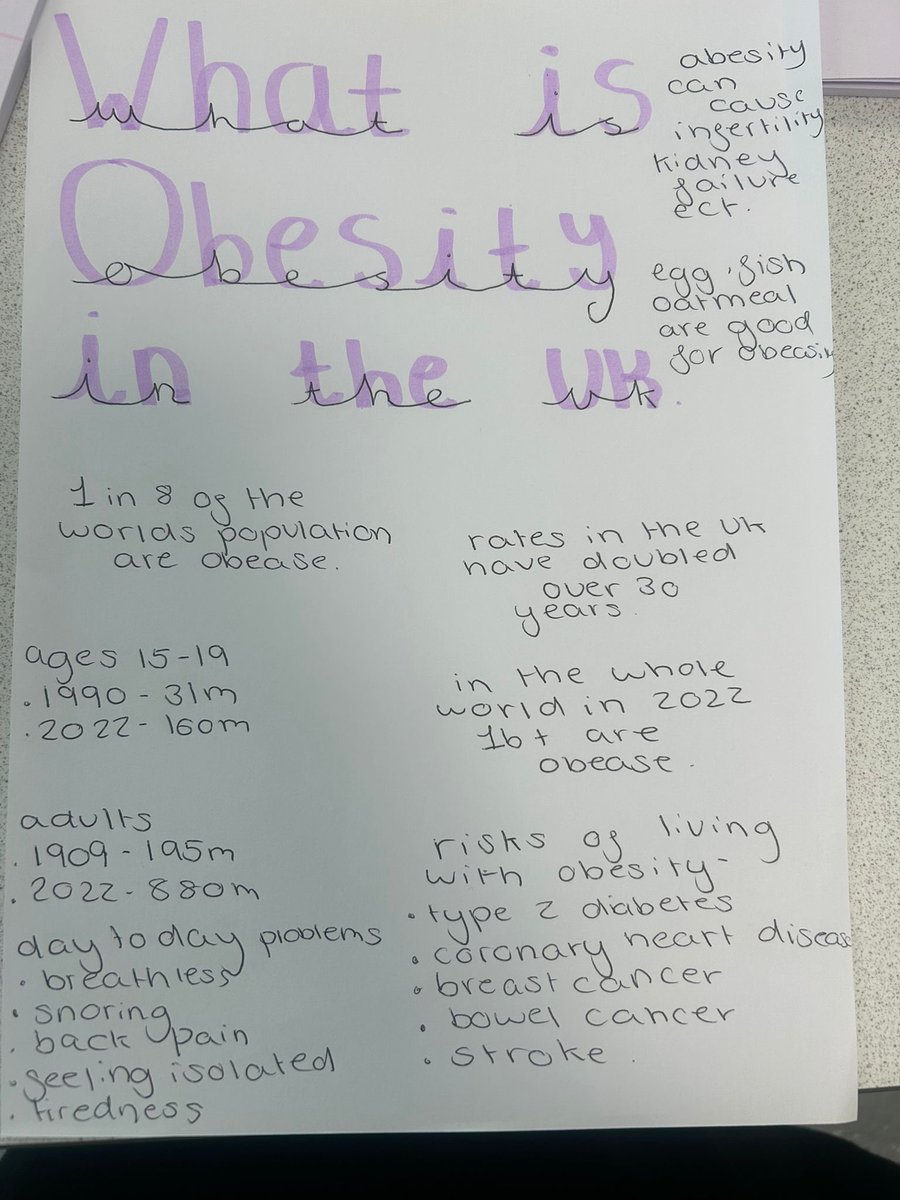 What is
what is
Obesity
obesity
in the UK.
in the uk
abesity
can
cause
infertility
kidney
failure
ect.
egg, fish
oatmeal
are good
for obeasity
1 in 8 of the
worlds population
are obease.
rates in the UK
have doubled
over 30
years.
ages 15-19
. 1990 - 31m
. 2022 - 160m
in the whole
world in 2022
1b+ are
obease.
adults
. 1909 - 195m
. 2022 - 880m
risks of living
with obesity-
• type 2 diabetes
• coronary heart disease
• breast cancer
• bowel cancer
• stroke.
day to day ploblems
• breathless
• snoring
. back pain
• feeling isolated
. tiredness